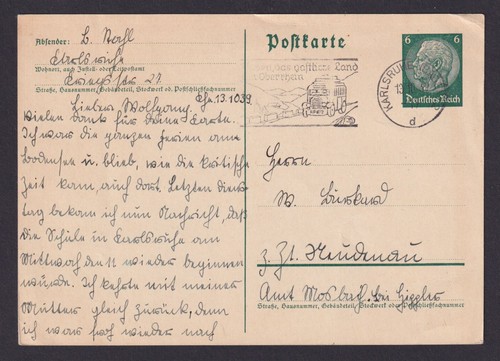 Absender: L. Stahl
Karlsruhe
Wohnort, auch Zustell- oder Leitpostamt
Kriegsstr 27.
Straße, Hausnummer, Gebäudeteil, Stockwerk od. Postschließfachnummer
Khe. 13.10.39.
Lieber Wolfgang,
vielen Dank für deine Karte.
Ich war die ganzen Ferien am
Bodensee u. blieb, wie die kritische
Zeit kam, auch dort. Letzten Diens-
tag bekam ich nun Nachricht, daß
die Schule in Karlsruhe am
Mittwoch den 11 wieder beginnen
würde. Ich kehrte mit meiner
Mutter gleich zurück, denn
ich war froh wieder nach
Postkarte
6 6
Deutsches Reich
das gastliche Land
am Oberrhein
KARLSRUHE
13
d
Herrn
W. Burkard
z. Zt. Neudenau
Amt Mosbach bei
Straße, Hausnummer, Gebäudeteil, Stockwerk oder Postschließfachnummer